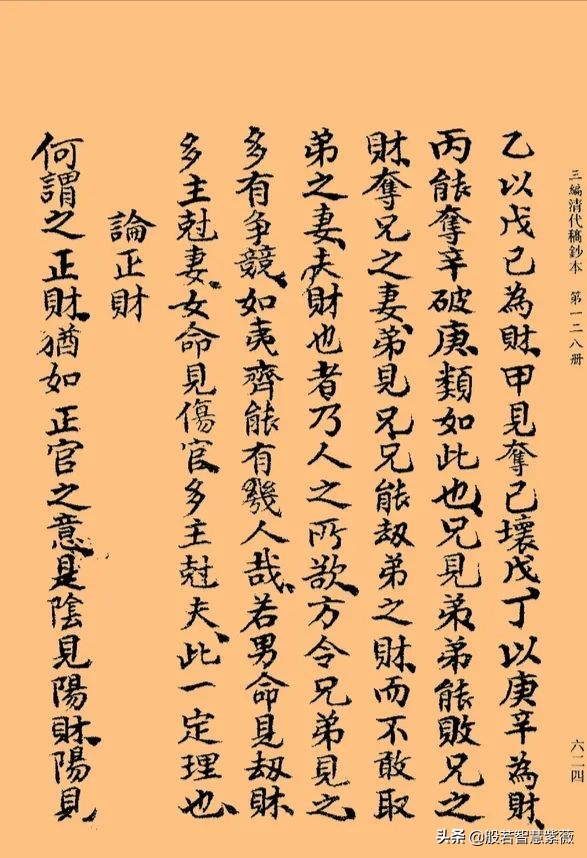 三編清代稿鈔本　第一二八册
六二四
乙以戊己為財甲見奪己壞戊丁以庚辛為財
丙能奪辛破庚類如此也兄見弟弟能敗兄之
財奪兄之妻弟見兄兄能刼弟之財而不敢取
弟之妻夫財也者乃人之所欲方令兄弟見之
多有争競如夷齊能有幾人哉若男命見刼財
多主尅妻女命見傷官多主尅夫此一定理也
論正財
何謂之正財猶如正官之意是陰見陽財陽見
头条 @般若智慧紫薇